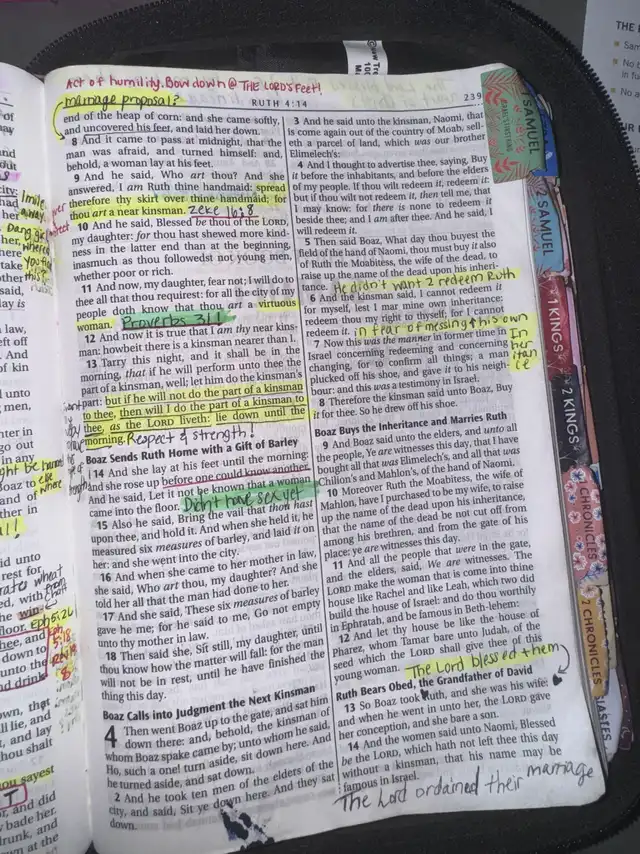 Act of humility. Bow down @ THE LORD'S Feet!
marriage proposal?
RUTH 4:14
239
end of the heap of corn: and she came softly,
and uncovered his feet, and laid her down.
8 And it came to pass at midnight, that the
man was afraid, and turned himself: and,
behold, a woman lay at his feet.
9 And he said, Who art thou? And she
answered, I am Ruth thine handmaid: spread
therefore thy skirt over thine handmaid; for
thou art a near kinsman. Zeke 16:8
10 And he said, Blessed be thou of the LORD,
my daughter: for thou hast shewed more kind-
ness in the latter end than at the beginning,
inasmuch as thou followedst not young men,
whether poor or rich.
11 And now, my daughter, fear not; I will do to
thee all that thou requirest: for all the city of my
people doth know that thou art a virtuous
woman. Proverbs 31!
12 And now it is true that I am thy near kins-
man: howbeit there is a kinsman nearer than I.
13 Tarry this night, and it shall be in the
morning, that if he will perform unto thee the
part of a kinsman, well; let him do the kinsman's
part: but if he will not do the part of a kinsman
to thee, then will I do the part of a kinsman to
thee, as the LORD liveth: lie down until the
morning. Respect & strength!
Boaz Sends Ruth Home with a Gift of Barley
14 And she lay at his feet until the morning:
and she rose up before one could know another.
And he said, Let it not be known that a woman
came into the floor. Didn't have sex yet
15 Also he said, Bring the vail that thou hast
upon thee, and hold it. And when she held it, he
measured six measures of barley, and laid it on
her: and she went into the city.
16 And when she came to her mother in law,
she said, Who art thou, my daughter? And she
told her all that the man had done to her.
17 And she said, These six measures of barley
gave he me; for he said to me, Go not empty
unto thy mother in law.
18 Then said she, Sit still, my daughter, until
thou know how the matter will fall: for the man
will not be in rest, until he have finished the
thing this day.
Boaz Calls into Judgment the Next Kinsman
4 Then went Boaz up to the gate, and sat him
down there: and, behold, the kinsman of
whom Boaz spake came by; unto whom he said,
Ho, such a one! turn aside, sit down here. And
he turned aside, and sat down.
2 And he took ten men of the elders of the
city, and said, Sit ye down here. And they sat
down.
3 And he said unto the kinsman, Naomi, that
is come again out of the country of Moab, sell-
eth a parcel of land, which was our brother
Elimelech's:
4 And I thought to advertise thee, saying, Buy
it before the inhabitants, and before the elders
of my people. If thou wilt redeem it, redeem it:
but if thou wilt not redeem it, then tell me, that
I may know: for there is none to redeem it
beside thee; and I am after thee. And he said, I
will redeem it.
5 Then said Boaz, What day thou buyest the
field of the hand of Naomi, thou must buy it also
of Ruth the Moabitess, the wife of the dead, to
raise up the name of the dead upon his inheri-
tance. He didn't want 2 redeem Ruth
6 And the kinsman said, I cannot redeem it
for myself, lest I mar mine own inheritance:
redeem thou my right to thyself; for I cannot
redeem it. in fear of messing this own
In
her
itan
ce
7 Now this was the manner in former time in
Israel concerning redeeming and concerning
changing, for to confirm all things; a man
plucked off his shoe, and gave it to his neigh-
bour: and this was a testimony in Israel.
8 Therefore the kinsman said unto Boaz, Buy
it for thee. So he drew off his shoe.
Boaz Buys the Inheritance and Marries Ruth
9 And Boaz said unto the elders, and unto all
the people, Ye are witnesses this day, that I have
bought all that was Elimelech's, and all that was
Chilion's and Mahlon's, of the hand of Naomi.
10 Moreover Ruth the Moabitess, the wife of
Mahlon, have I purchased to be my wife, to raise
up the name of the dead upon his inheritance,
that the name of the dead be not cut off from
among his brethren, and from the gate of his
place: ye are witnesses this day.
11 And all the people that were in the gate,
and the elders, said, We are witnesses. The
LORD make the woman that is come into thine
house like Rachel and like Leah, which two did
build the house of Israel: and do thou worthily
in Ephratah, and be famous in Beth-lehem:
12 And let thy house be like the house of
Pharez, whom Tamar bare unto Judah, of the
seed which the LORD shall give thee of this
young woman. The Lord blessed them
Ruth Bears Obed, the Grandfather of David
13 So Boaz took Ruth, and she was his wife:
and when he went in unto her, the LORD gave
her conception, and she bare a son.
14 And the women said unto Naomi, Blessed
be the LORD, which hath not left thee this day
without a kinsman, that his name may be
famous in Israel.
The Lord ordained their marriage
SAMUEL
SAMUEL
1 KINGS
2 KINGS
CHRONICLES
2 CHRONICLES
Eph 5:26